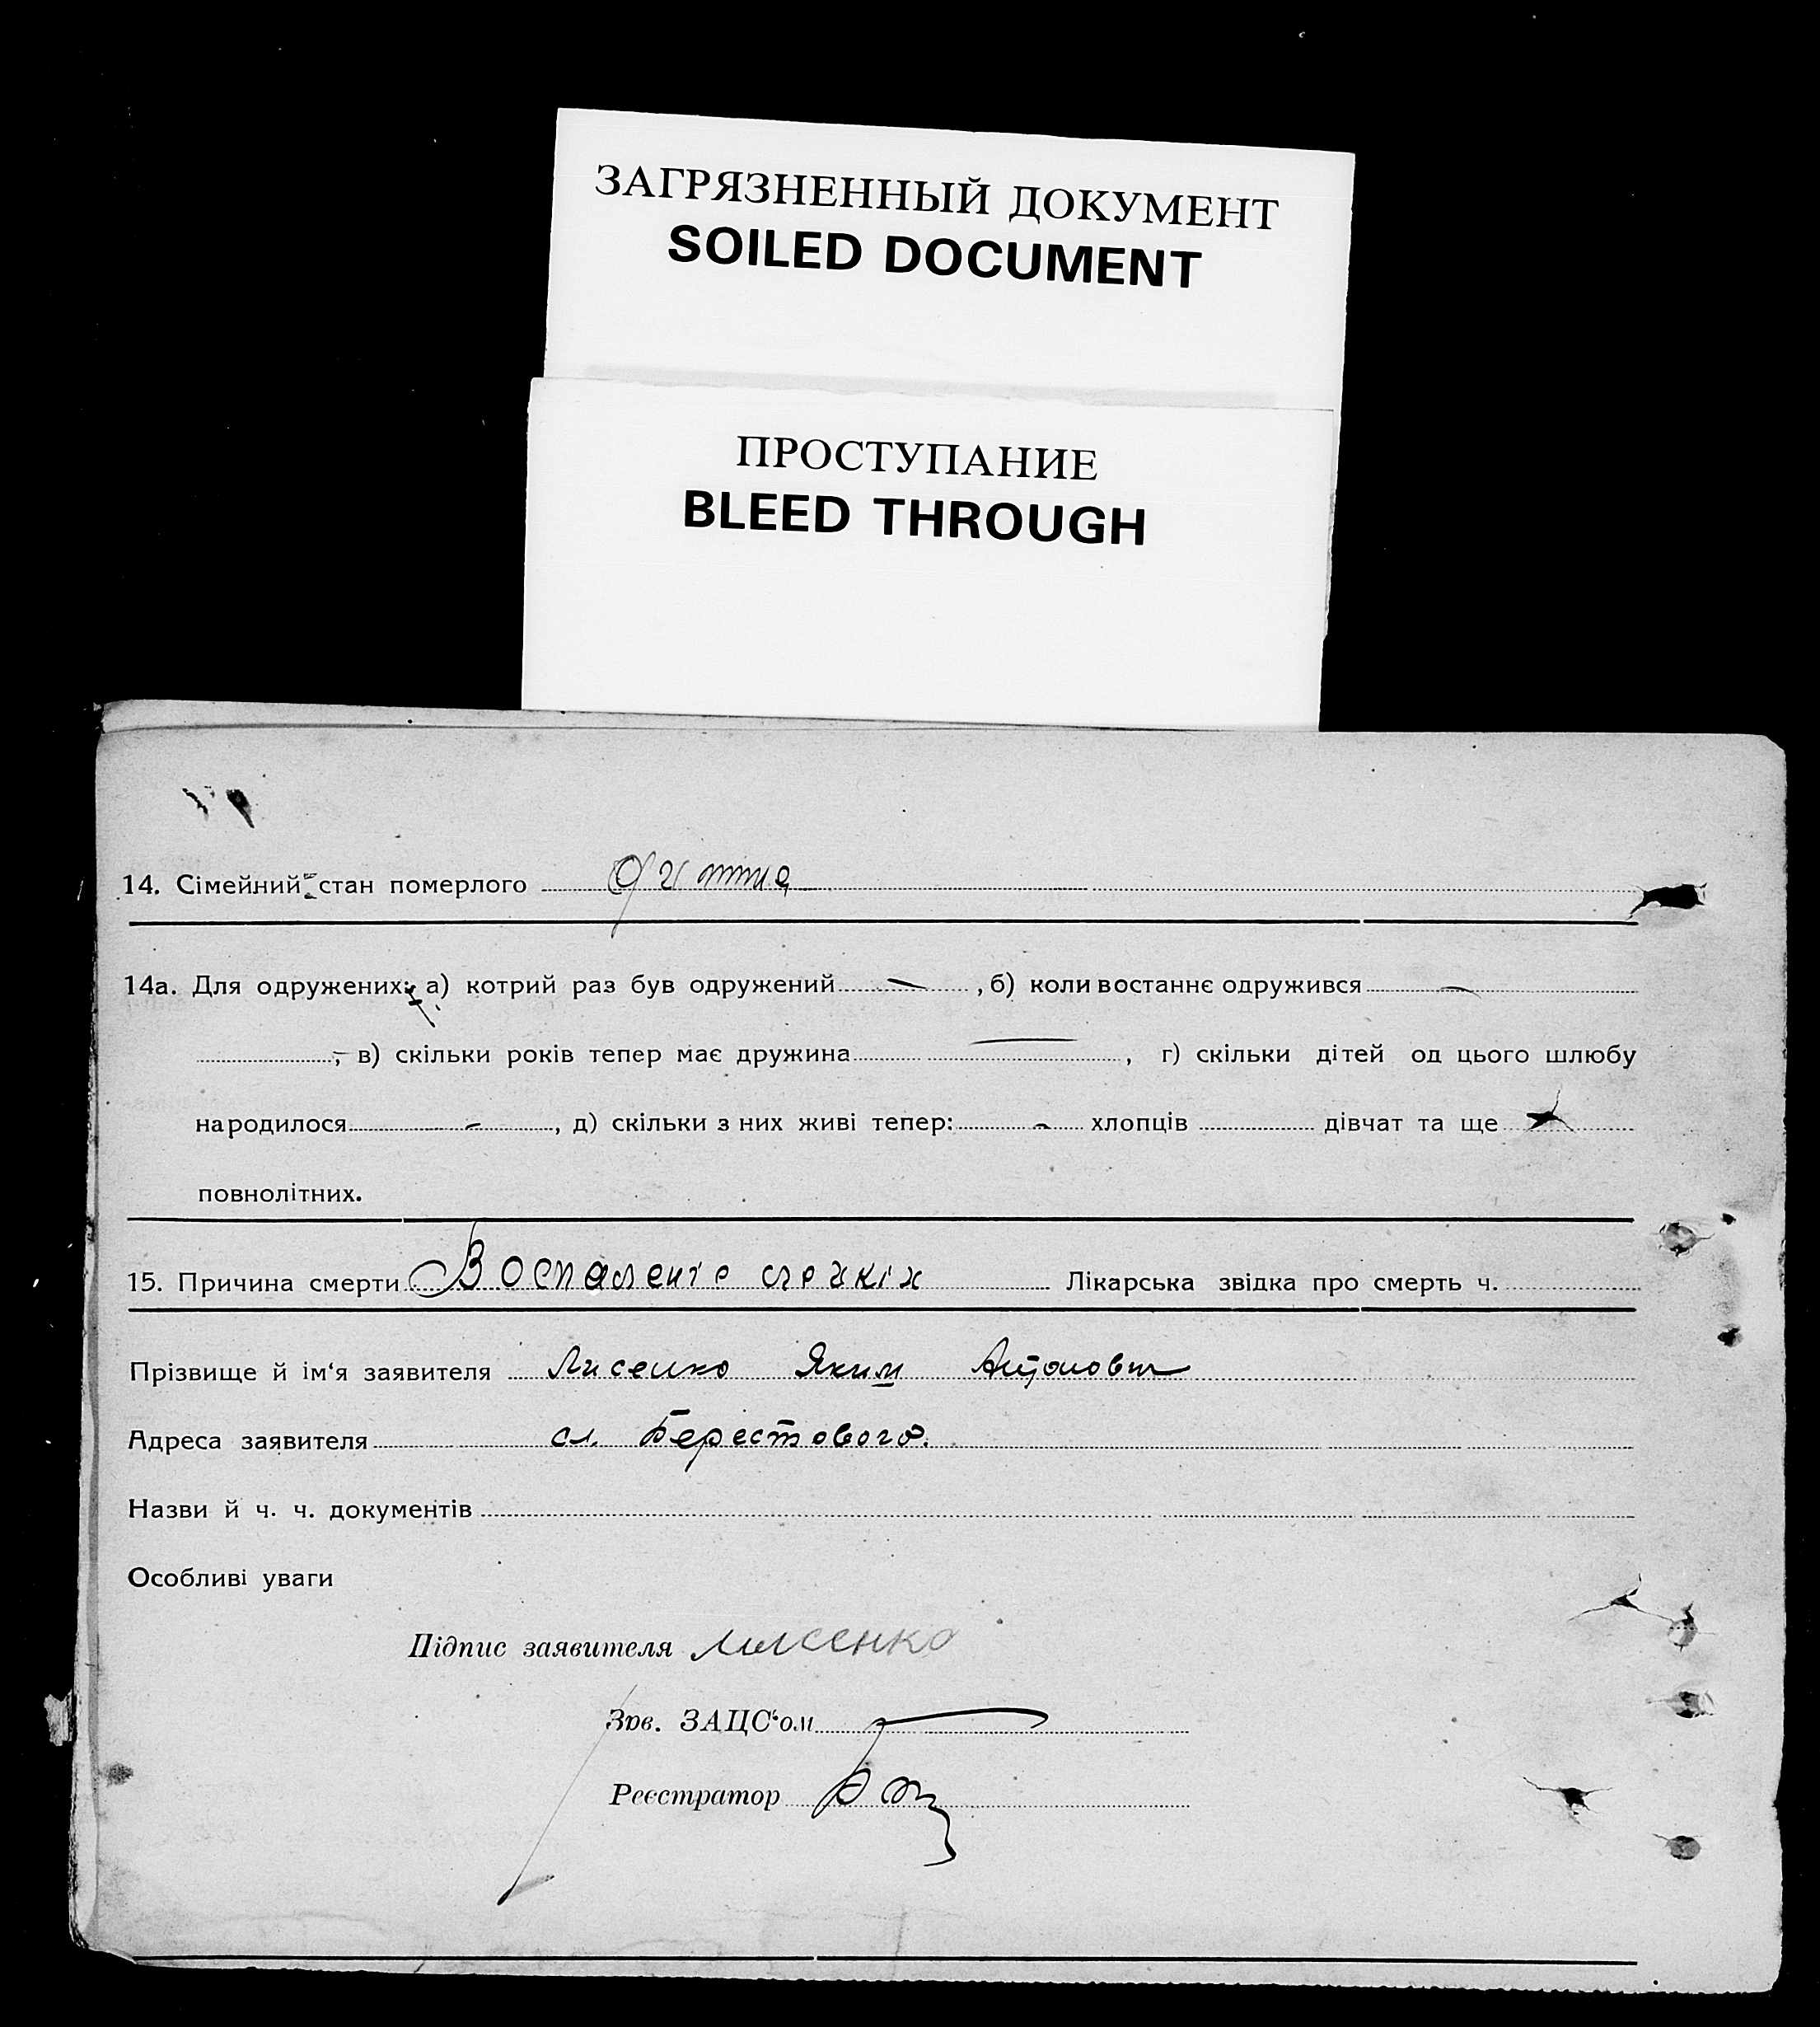 ЗАГРЯЗНЕННЫЙ ДОКУМЕНТ
SOILED DOCUMENT
ПРОСТУПАНИЕ
BLEED THROUGH
14. Сімейний стан померлого дитина
14а. Для одружених: а) котрий раз був одружений — , б) коли востаннє одружився —
, в) скільки років тепер має дружина — , г) скільки дітей од цього шлюбу
народилося - , д) скільки з них живі тепер: - хлопців дівчат та ще
повнолітних.
15. Причина смерти Воспаленіе легкіх Лікарська звідка про смерть ч.
Прізвище й ім‘я заявителя Лисенко Яким Антонович
Адреса заявителя сл. Берестового.
Назви й ч. ч. документів
Особливі уваги
Підпис заявителя Лисенко
Зав. ЗАЦС‘ом
Реєстратор